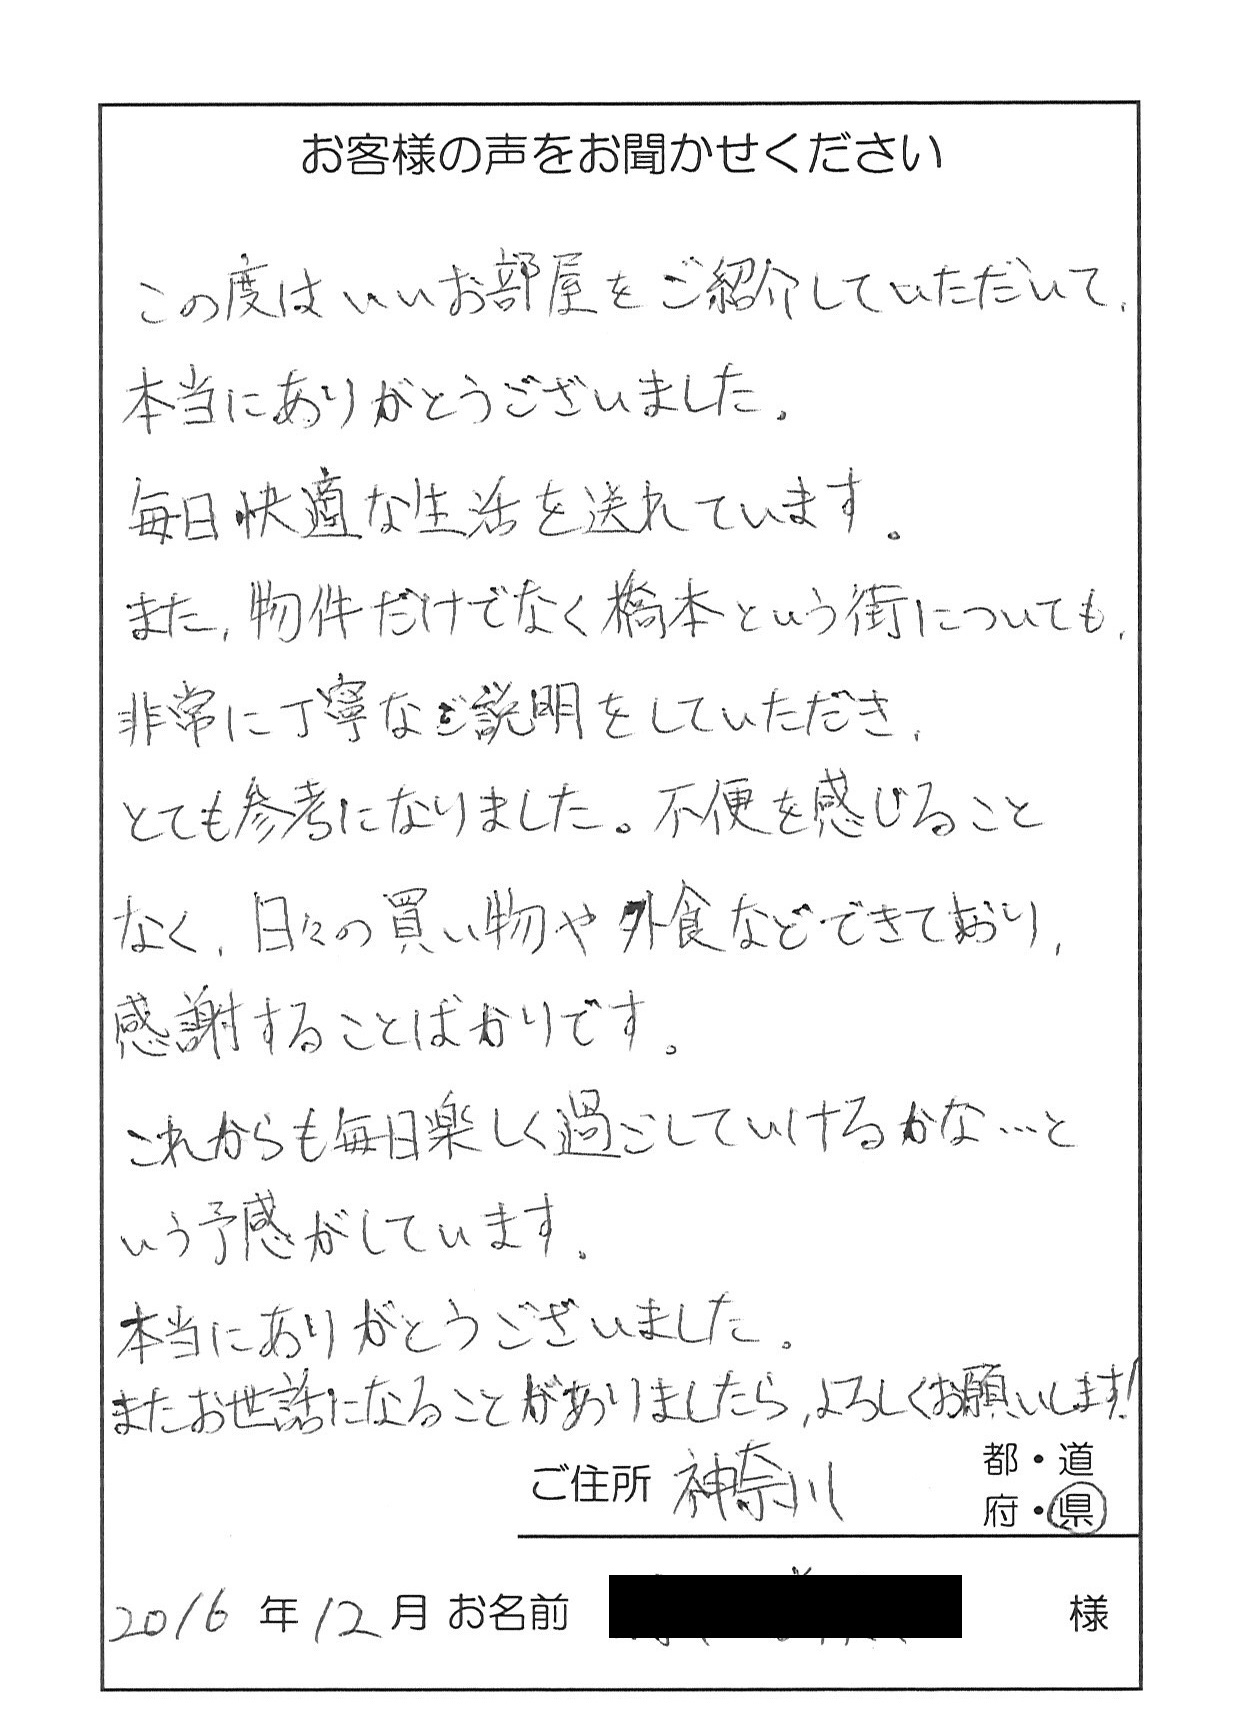 お客様の声をお聞かせください
この度はいいお部屋をご紹介していただいて、
本当にありがとうございました。
毎日快適な生活を送れています。
また、物件だけでなく橋本という街についても、
非常に丁寧なご説明をしていただき、
とても参考になりました。不便を感じること
なく、日々の買い物や外食などできており、
感謝することばかりです。
これからも毎日楽しく過ごしていけるかな…と
いう予感がしています。
本当にありがとうございました。
またお世話になることがありましたら、よろしくお願いします!
ご住所 神奈川 都・道
府・県
2016年12月 お名前 様